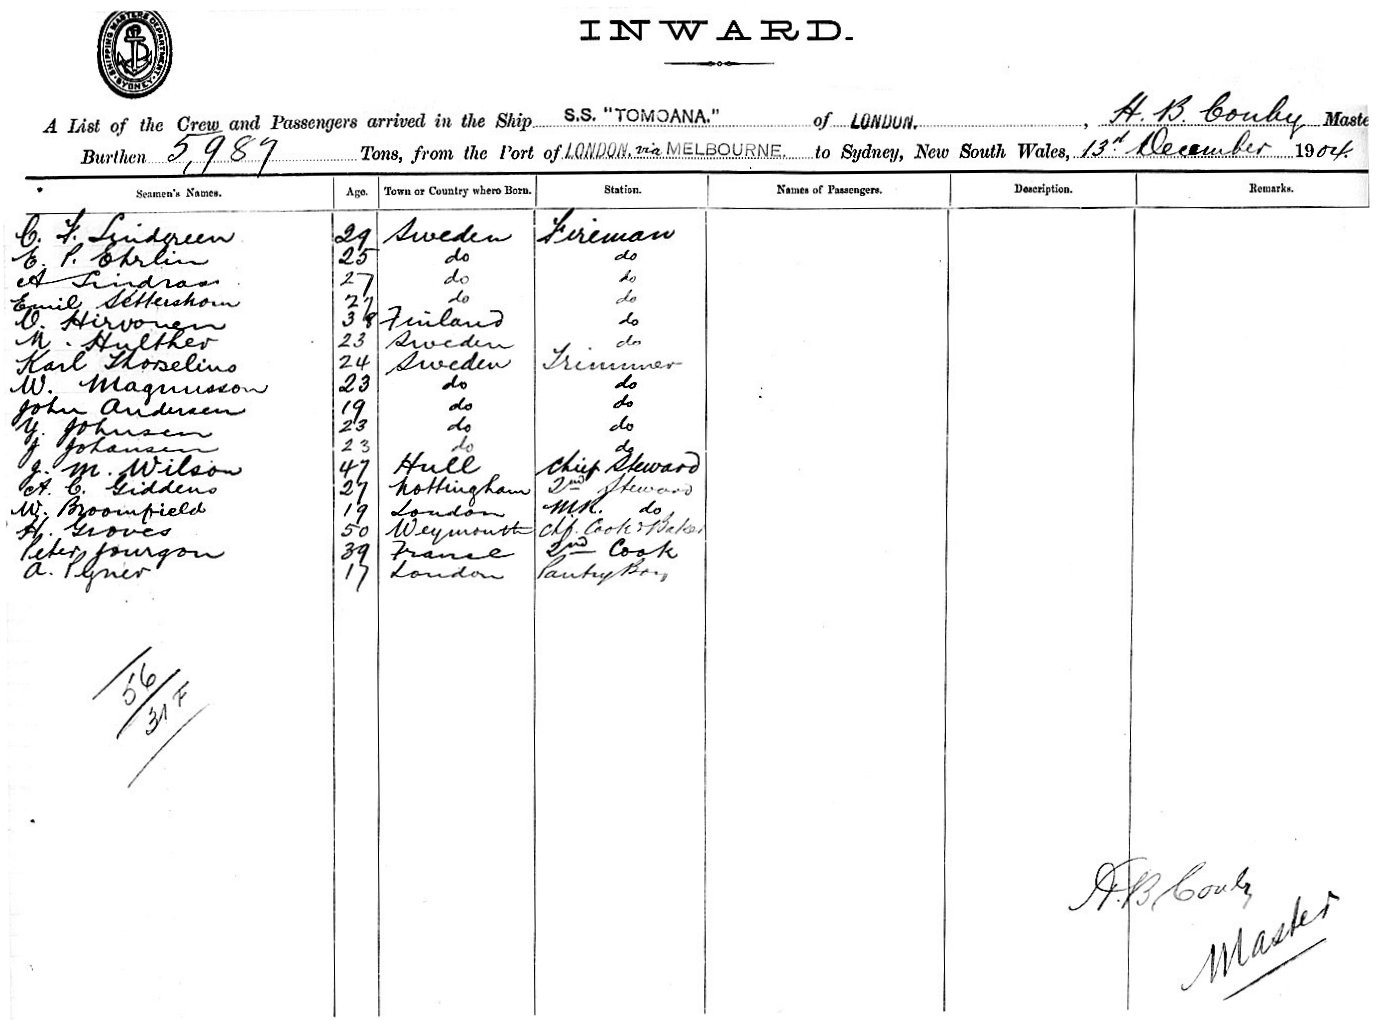 SHIPPING MASTERS DEPARTMENT. SYDNEY.
INWARD.
A List of the Crew and Passengers arrived in the Ship S.S. "TOMOANA." of LONDON. , H. B. Conby Maste
Burthen 5,987 Tons, from the Port of LONDON. via MELBOURNE. to Sydney, New South Wales, 13th December 1904.
Seamen's Names. Age. Town or Country where Born. Station. Names of Passengers. Description. Remarks.
C. F. Lindgreen 29 Sweden Fireman
E. P. Ehrlin 25 do do
A Lindras 27 do do
Emil Settershom 27 do do
O. Hirvonen 38 Finland do
N. Hulther 23 Sweden do
Karl Thorselius 24 Sweden Trimmer
W. Magnusson 23 do do
John Andersen 19 do do
Y. Johnsen 23 do do
J Johansen 23 do do
J. M. Wilson 47 Hull Chief Steward
A. C. Giddens 27 Nottingham 2nd Steward
W. Broomfield 19 London MR. do
H. Groves 50 Weymouth Chf. Cook & Baker
Peter Jourgon 39 France 2nd Cook
A. Pyner 17 London Pantry Boy
56
31 F
H. B. Conby
Master